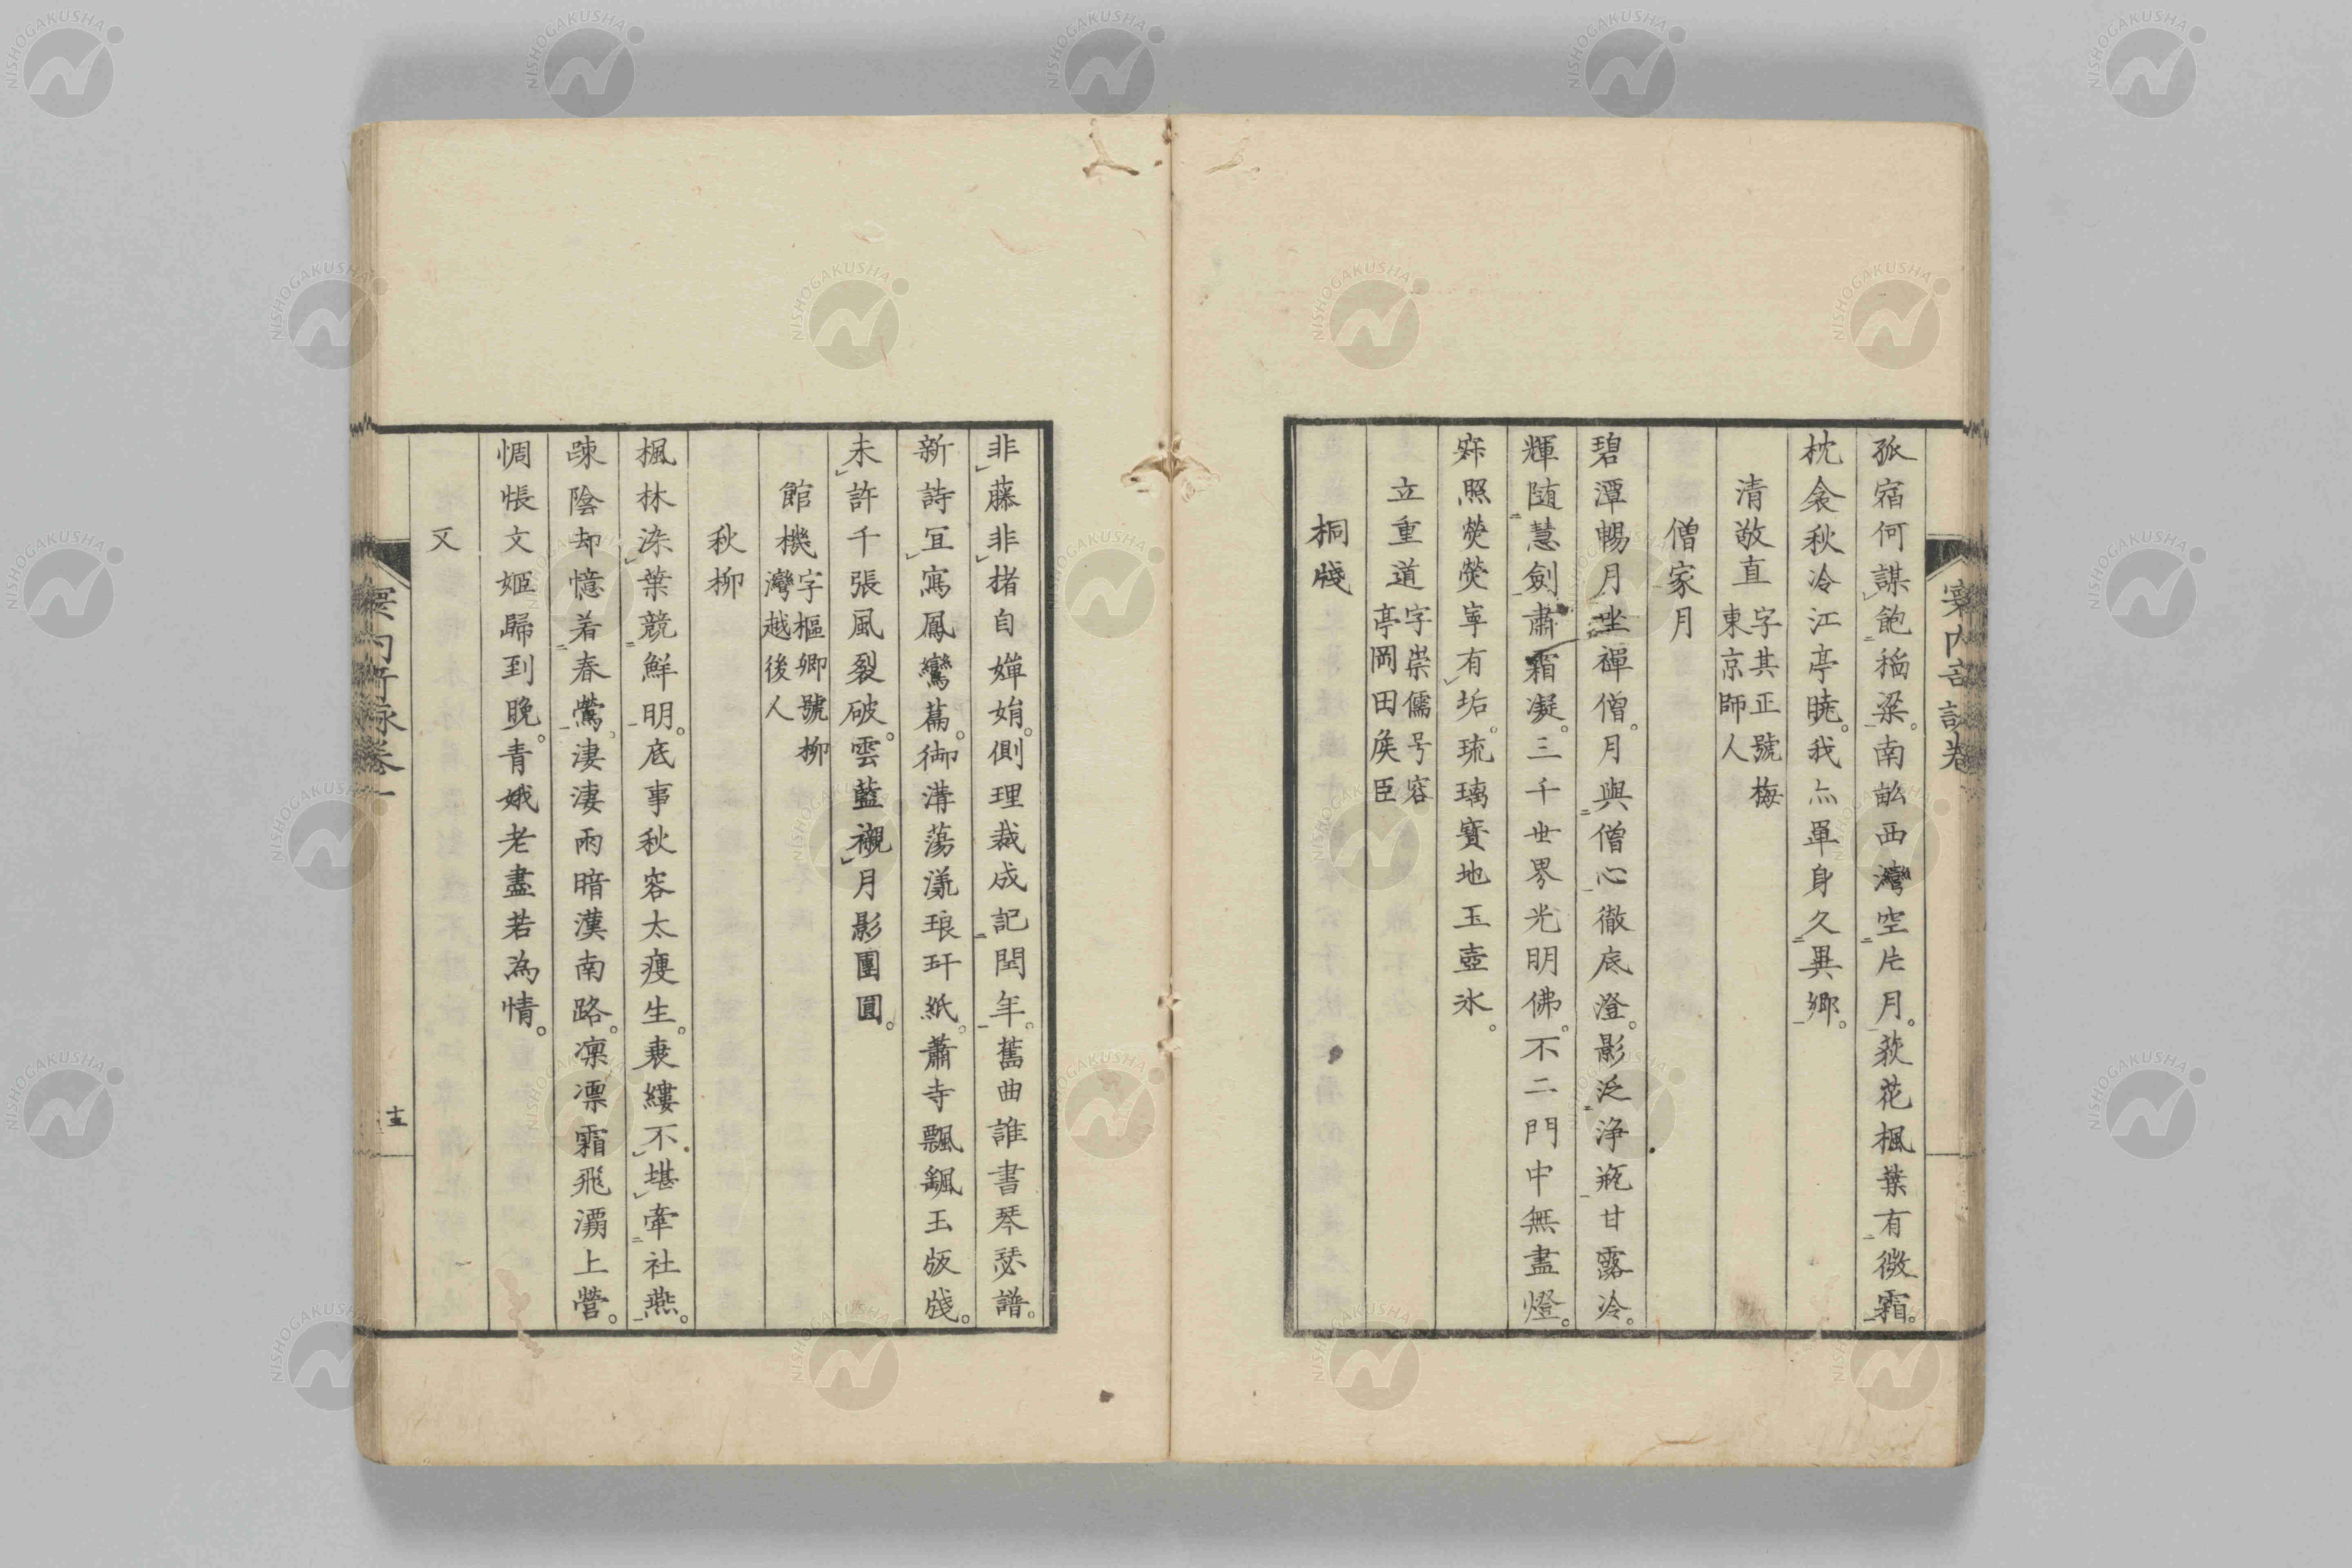 孤宿何謀飽稻粱。南畝西灣空片月。荻花楓葉有微霜。
枕衾秋冷江亭曉。我亦單身久異鄉。
清敬直 字其正號梅
東京師人
僧家月
碧潭暢月坐禪僧。月與僧心徹底澄。影泛浄瓶甘露冷。
輝随慧劍肅霜凝。三千世界光明佛。不二門中無盡燈。
寂照熒熒寧有垢。琉璃寶地玉壺氷。
立重道 字崇儒号容
亭岡田矦臣
桐牋
非藤非楮自嬋娟。側理裁成記閏年。舊曲誰書琴瑟譜。
新詩宜寫鳳鸞篇。御溝蕩漾琅玕紙。蕭寺飄颻玉版牋。
未許千張風裂破。雲藍襯月影團圓。
館機 字樞卿號柳
灣越後人
秋柳
楓林染葉競鮮明。底事秋容太瘦生。衰縷不堪牽社燕。
疎陰却憶着春鶯。淒淒雨暗漢南路。凛凓霜飛灞上營。
惆悵文姬歸到晚。青娥老盡若為情。
又
NISHOGAKUSHA